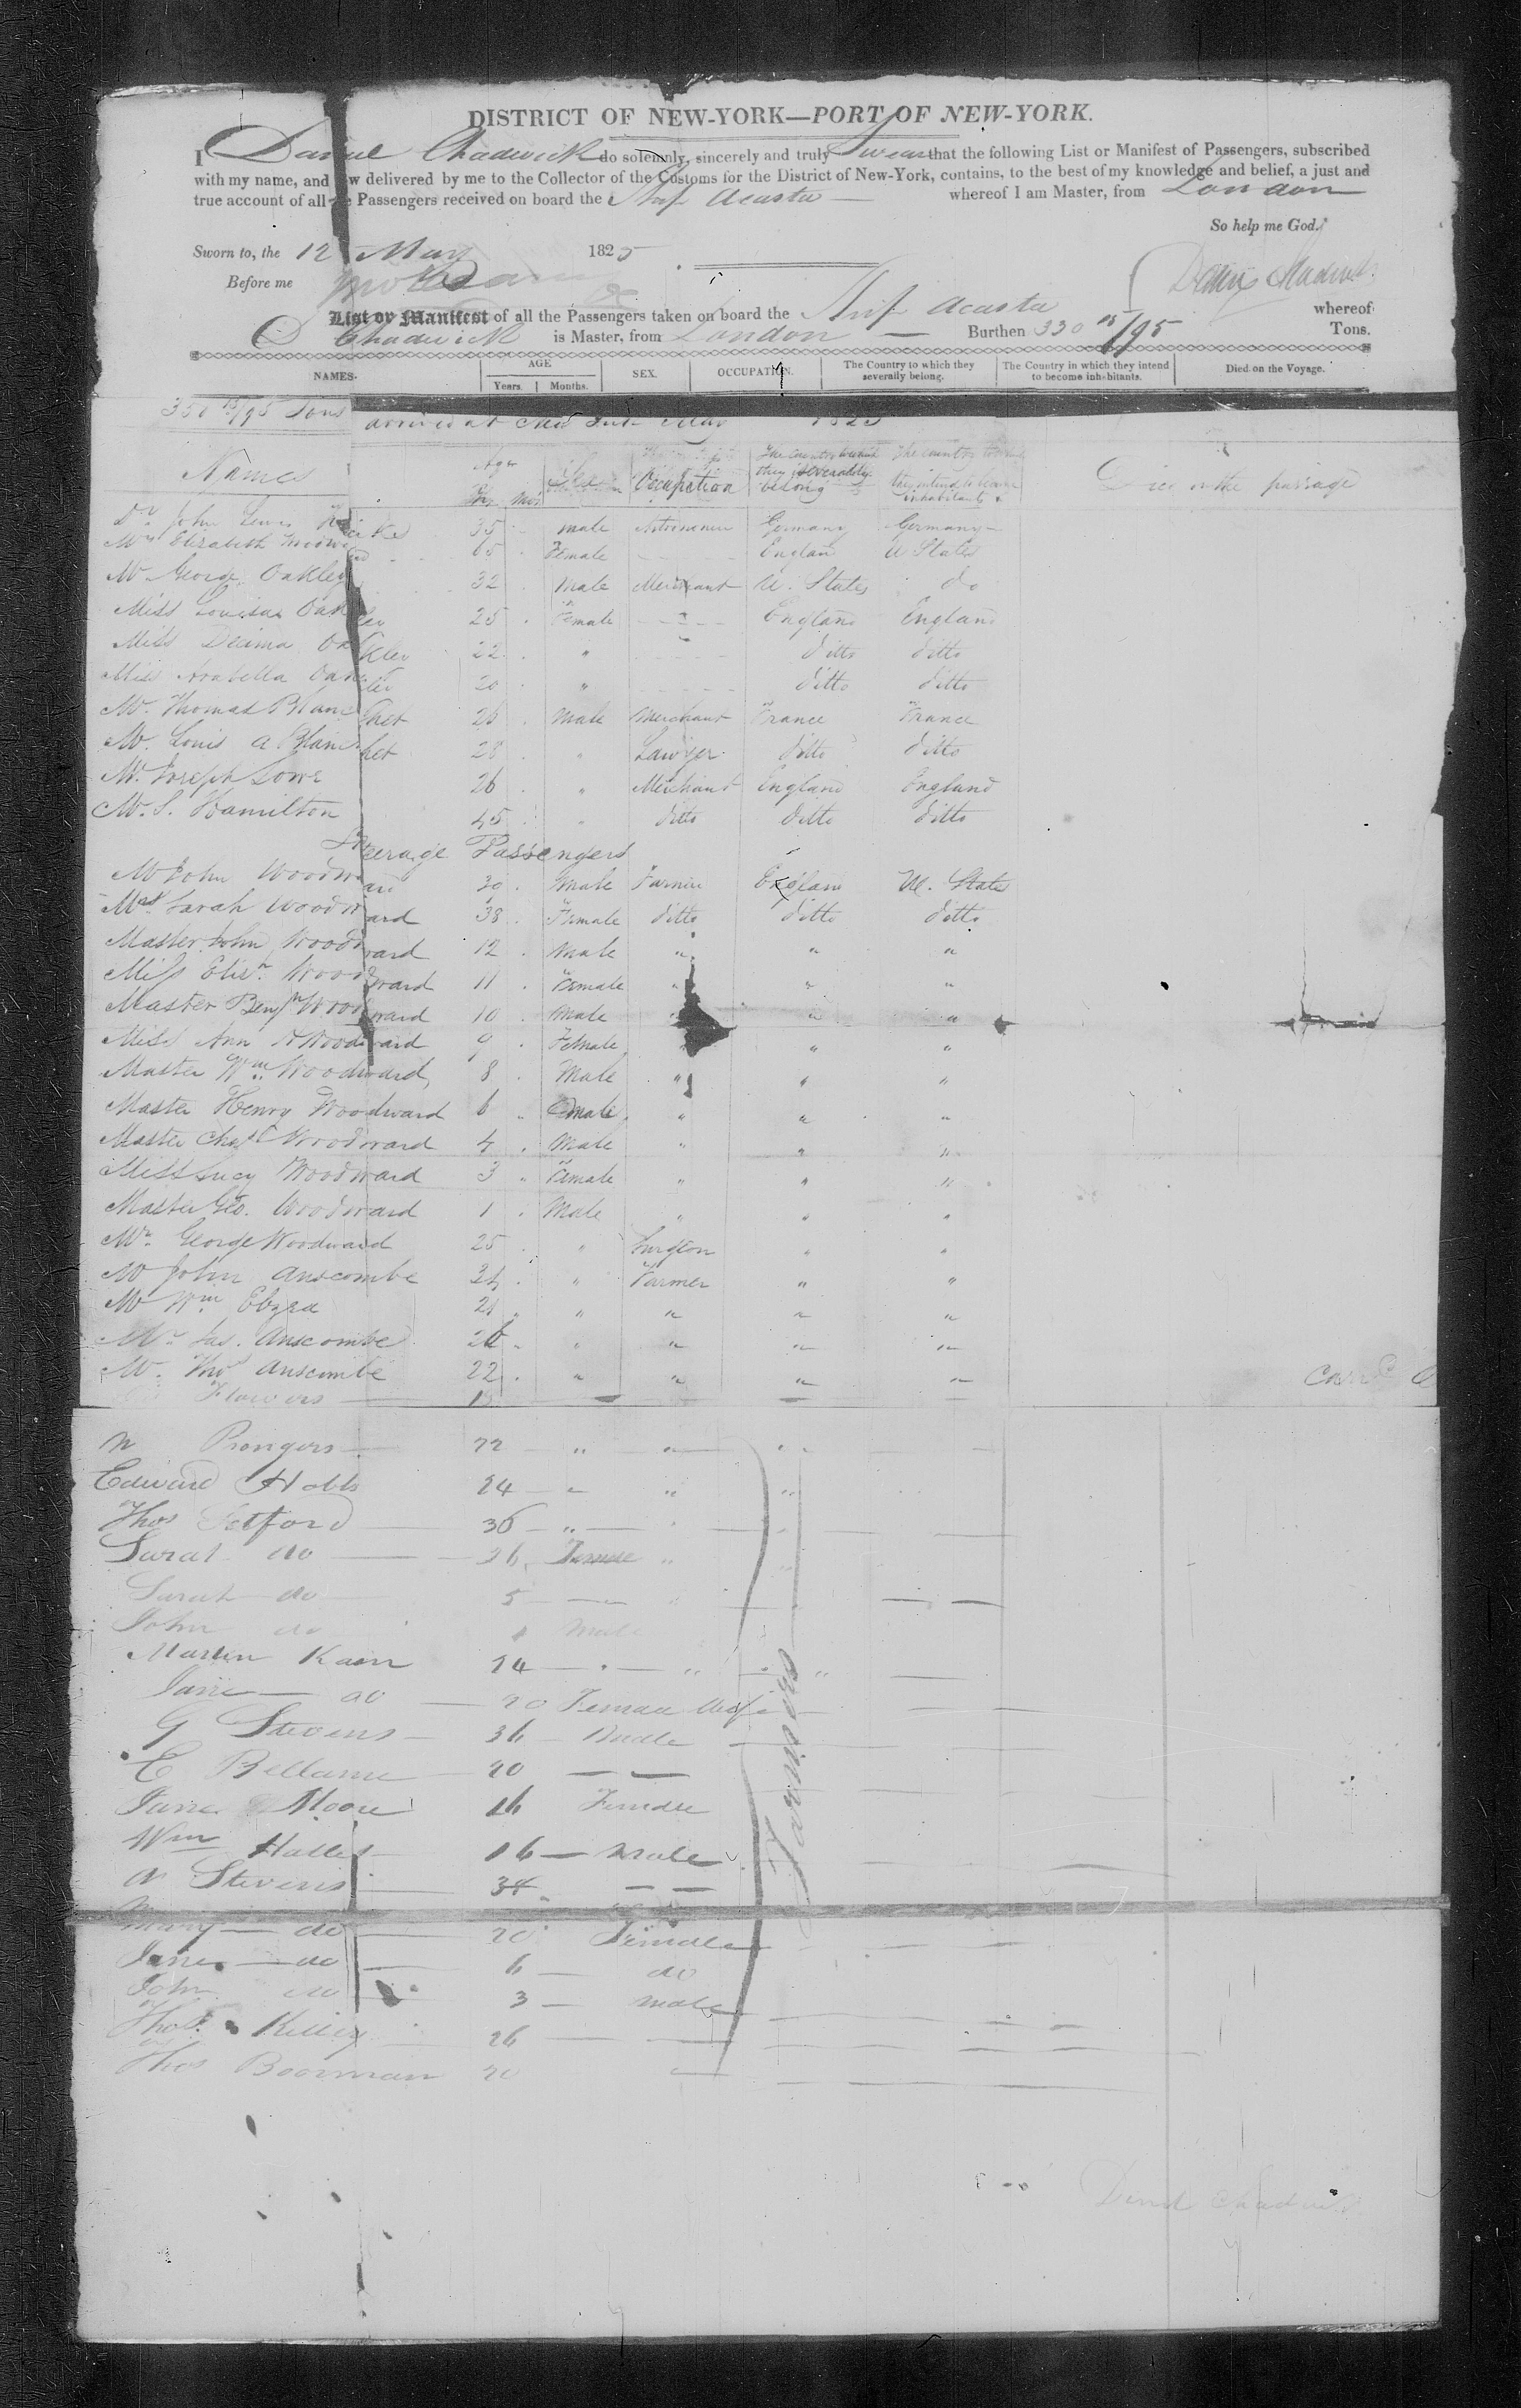 DISTRICT OF NEW-YORK—PORT OF NEW-YORK.
I Daniel Chadwick do solemnly, sincerely and truly Swear that the following List or Manifest of Passengers, subscribed
with my name, and now delivered by me to the Collector of the Customs for the District of New-York, contains, to the best of my knowledge and belief, a just and
true account of all the Passengers received on board the Ship Acasta whereof I am Master, from London
So help me God.
Sworn to, the 12 May 1825
Before me
Daniel Chadwick
List or Manifest of all the Passengers taken on board the Ship Acasta whereof
D Chadwick is Master, from London — Burthen 330 /95 Tons.
NAMES. AGE Years. Months. SEX. OCCUPATION. The Country to which they severally belong. The Country in which they intend to become inhabitants. Died on the Voyage.
/95 Tons arrived at New York May 1825
Names Age Yrs Mos Sex Occupation The Country to which they severally belong The country they intend to become inhabitants Died on the passage
Dr John Lewis 35 male Germany Germany
Mrs Elizabeth 65 Female England U States
Mr George Oakley 32 male Merchant U. States do
Miss Louisa Oakley 25 Female England England
Miss Decima Oakley 22 " ditto ditto
Miss Arabella Oakley 20 " ditto ditto
Mr. Thomas Blanchet 26 male Merchant France France
Mr. Louis A Blanchet 28 " Lawyer ditto ditto
Mr. Joseph Lowe 26 " Merchant England England
Mr. S. Hamilton 45 " ditto ditto ditto
Steerage Passengers
Mr John Woodward 30 male Farmer England U. State
Mrs. Sarah Woodward 38 Female ditto ditto ditto
Master John Woodward 12 male " " "
Miss Eliz. Woodward 11 Female " " "
Master Benjn Woodward 10 Male " "
Miss Ann Woodward 9 Female " "
Master Wm. Woodward 8 Male " " "
Master Henry Woodward 6 male " " "
Master Chas Woodward 4 Male " " "
Miss Lucy Woodward 3 Female " " "
Master Geo. Woodward 1 Male " " "
Mr. George Woodward 25 " Surgeon " "
Mr John Anscombe 24 " Farmer " "
Mr Wm. 21 " " " "
Mr Jas. Anscombe " " " "
Mr. Thos Anscombe 22 " " " "
Flowers — 15
Prongers — 22 " "
Edward Hobbs 24 " "
Thos Setford — 36 — " —
Sarah do — 36 Female "
Sarah do — 5 —
John do male
Martin Kain 24 — " — "
Jane — do — 20 Female Wife
G Stevens — 36 — Male
E Bellamy 20 — —
Jane Moore 16 Female
Wm 16 — Male
N Stevens — 38 — —
Mary — do — 20 Female
Jane — do — 6 — do
John do 3 — male
Thos. Killey 26 — —
Thos Boorman 20 —
Farmers
Daniel Chadwick